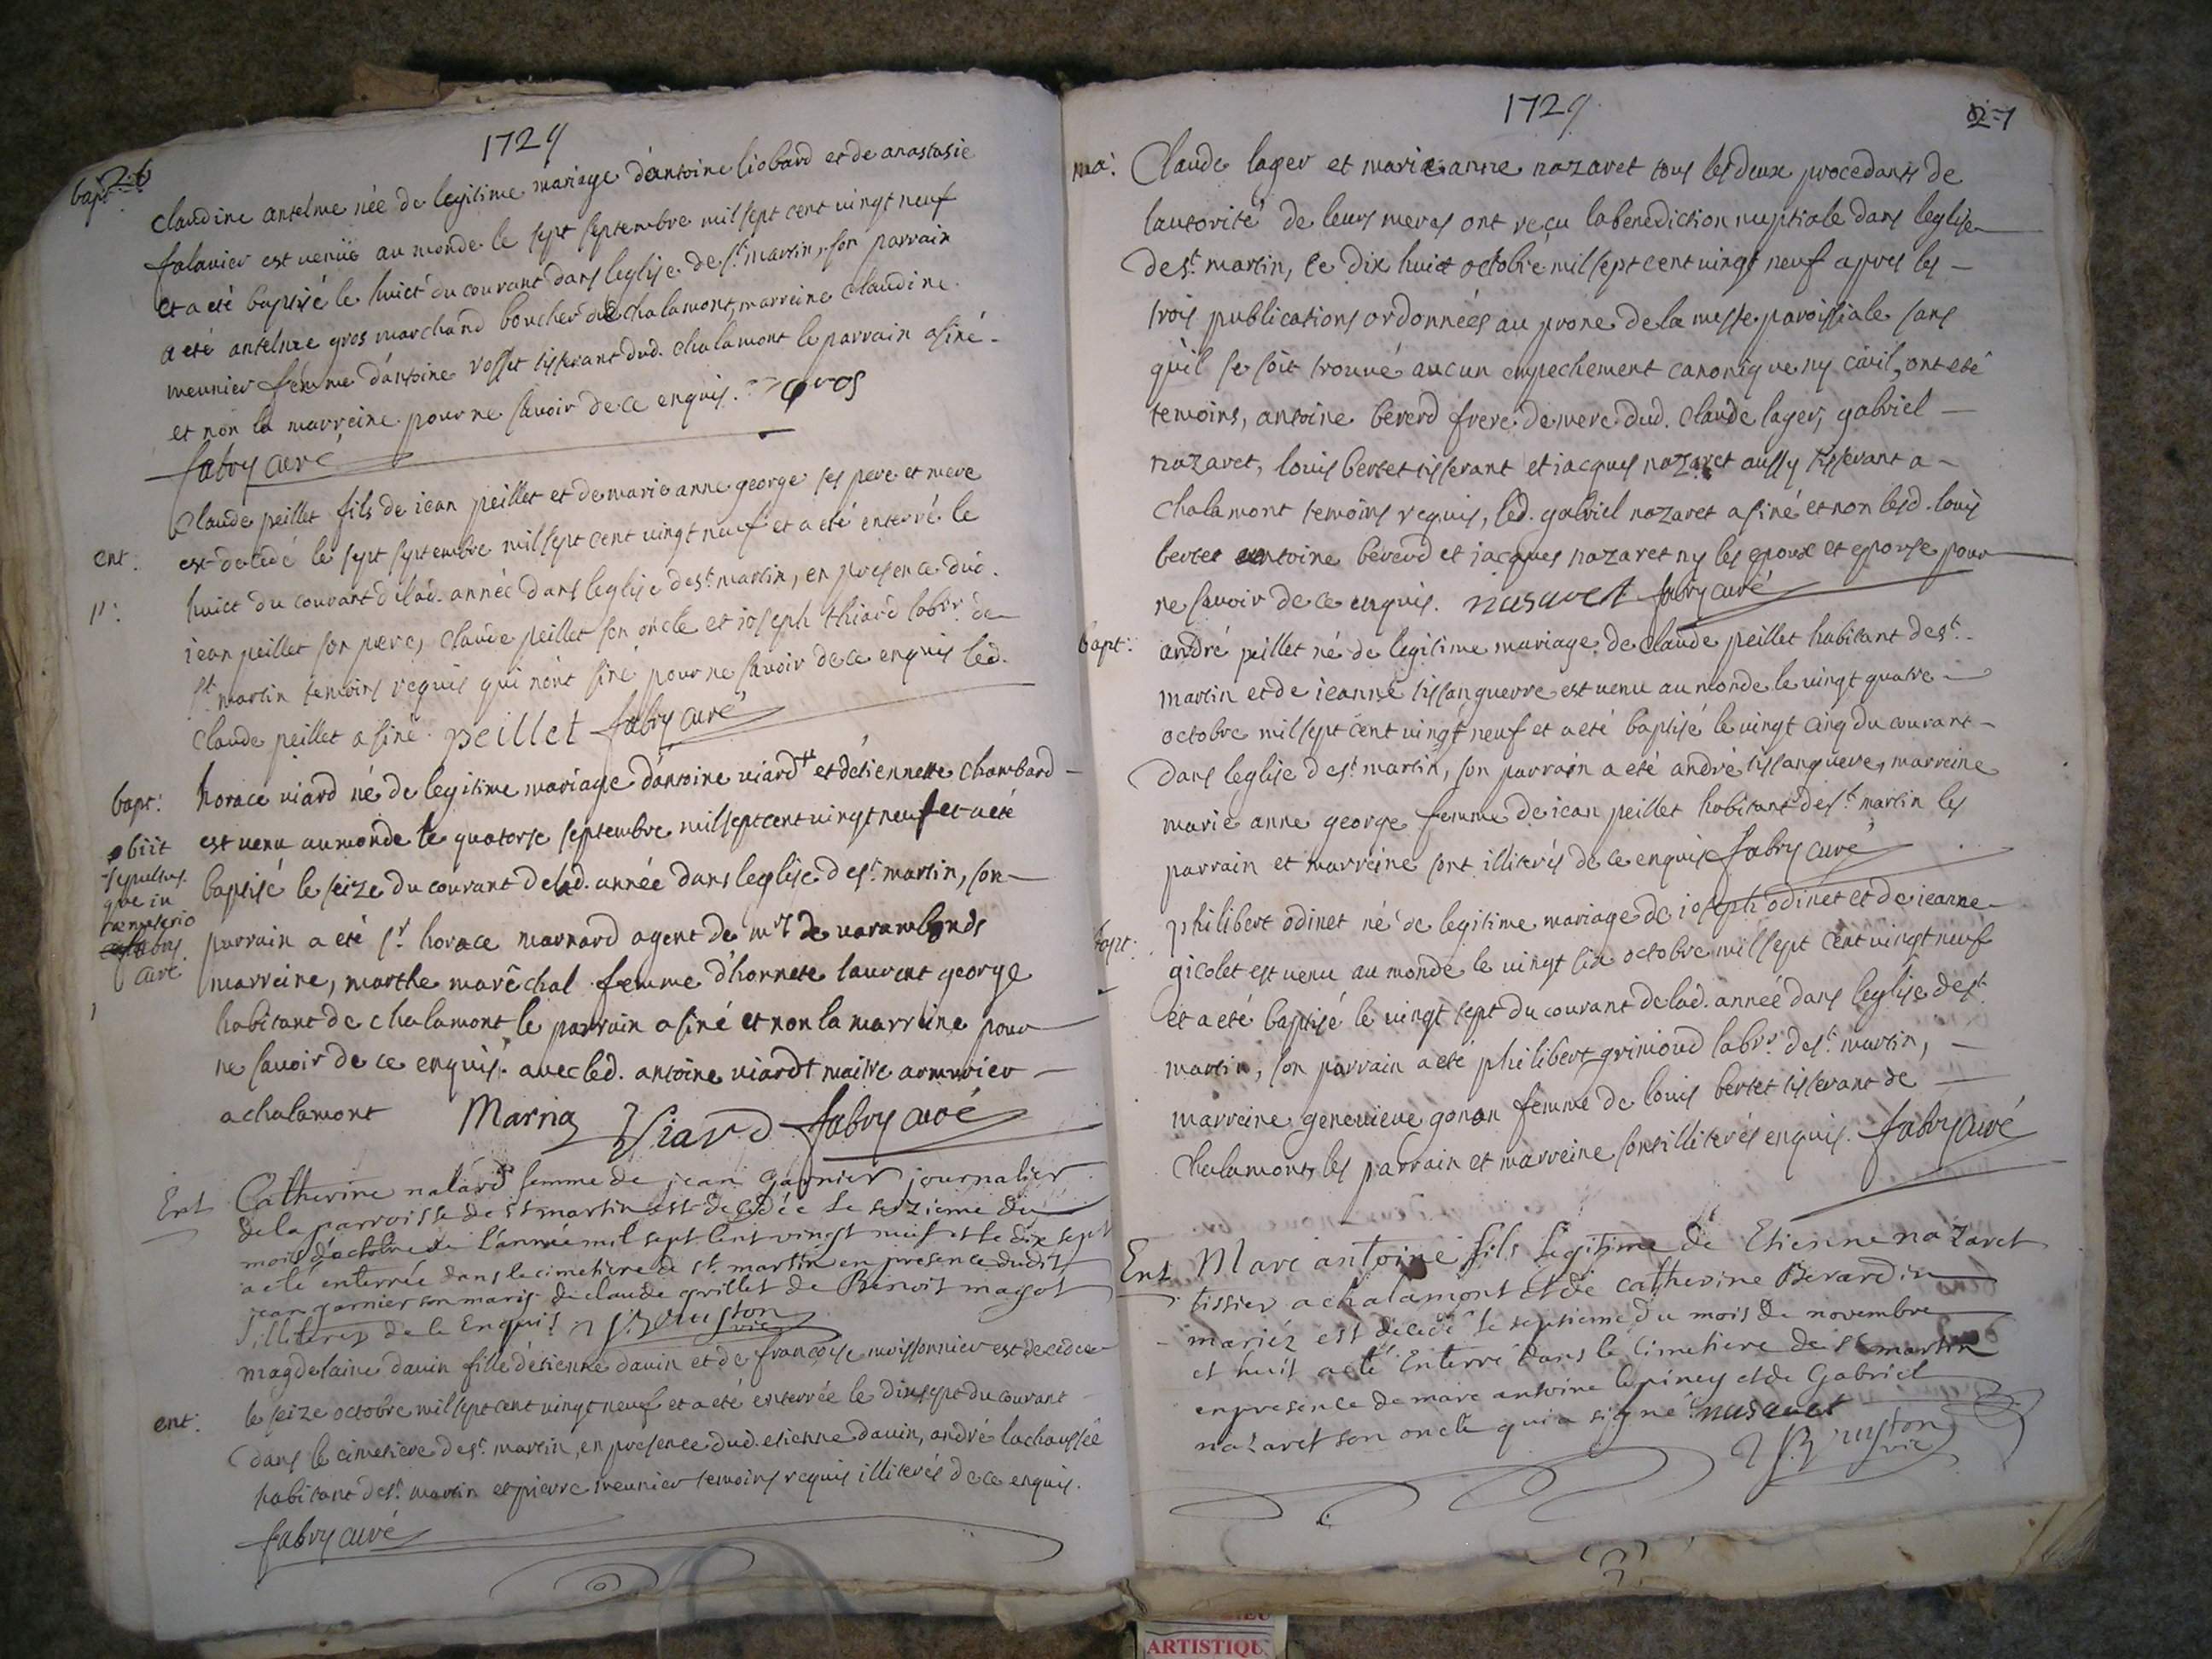 1729
26
bapt:
claudine antelme née de legitime mariage d'antoine liobard et de anastasie
falavier est venuë au monde le sept septembre mil sept cent vingt neuf
et a eté baptisé le huict du courant dans leglise de st. martin, son parrain
a eté antelme gros marchand boucher de chalamont, marreine claudine
meunier femme d'antoine rosset tisserant dud. chalamont le parrain a siné
et non la marreine pour ne savoir de ce enquis. gros
fabry curé
ent:
claude peillet fils de iean peillet et de marie anne george ses pere et mere
est decedé le sept septembre mil sept cent vingt neuf et a eté enterré le
huict du courant de lad. année dans leglise de st. martin, en presence dud.
iean peillet son pere, claude peillet son oncle et ioseph thiard labr. de
st. martin temoins requis qui n'ont siné pour ne savoir de ce enquis led.
claude peillet a siné. peillet fabry curé
bapt:
horace viard né de legitime mariage d'antoine viardt et d'etiennette chambard
est venu au monde le quatorse septembre mil sept cent vingt neuf et a eté
baptisé le seize du courant de lad. année dans leglise de st. martin, son
parrain a eté sr. horace marnard agent de mr. de varambonds
marreine, marthe maréchal femme d'honnete laurent george
habitant de chalamont le parrain a siné et non la marreine pour
ne savoir de ce enquis. avec led. antoine viardt maitre armurier
a chalamont Marna Viard fabry curé
obiit
sepultus
que in
cœmeterio
fabry
curé
Ent
Catherine nalard femme de jean garnier journalier
de la parroisse de st martin est decedée le seizieme du
mois d'octobre de l'année mil sept cent vingt neuf et le dix sept
a eté enterrée dans le cimetiere de st. martin en presence dudit
jean garnier son maris de claude grillet de Benoit magot
illiterez de ce Enquis Bruston
vic
ent:
magdelaine dauin fille d'etienne dauin et de françoise moissonnier est decedée
le seize octobre mil sept cent vingt neuf et a eté enterrée le dix sept du courant
dans le cimetiere de st. martin, en presence dud. etienne dauin, andré lachaussée
habitant de st. martin et pierre meunier temoins requis illiterés de ce enquis.
fabry curé
1729
27
ma:
Claude lager et marie anne nazaret tous les deux procedants de
lautorité de leurs meres ont reçu la benediction nuptiale dans leglise
de st. martin, le dix huict octobre mil sept cent vingt neuf apres les
trois publications ordonnées au prone de la messe paroissiale sans
qu'il se soit trouvé aucun empechement canonique ny civil, ont eté
temoins, antoine bererd frere de mere dud. claude lager, gabriel
nazaret, louis bertet tisserant et iacques nazaret aussy tisserant a
chalamont temoins requis, led. gabriel nazaret a siné et non lesd. louis
bertet antoine bererd et jacques nazaret ny les epoux et epouse pour
ne savoir de ce enquis. nasaret fabry curé
bapt:
andré peillet né de legitime mariage de claude peillet habitant de st.
martin et de ieanne tissanguerre est venu au monde le vingt quatre
octobre mil sept cent vingt neuf et a eté baptisé le vingt cinq du courant
dans leglise de st. martin, son parrain a eté andré tissanguere, marreine
marie anne george femme de iean peillet habitant de st. martin les
parrain et marreine sont illiterés de ce enquis fabry curé
bapt:
philibert odinet né de legitime mariage de ioseph odinet et de ieanne
gicolet est venu au monde le vingt six octobre mil sept cent vingt neuf
et a eté baptisé le vingt sept du courant de lad. année dans leglise de st.
martin, son parrain a eté philibert grimoud labr. de st. martin,
marreine genevieve gonon femme de louis bertet tisserant de
chalamont, les parrain et marreine sont illiterés enquis. fabry curé
Ent
Marc antoine fils legitime de Etienne nazaret
tissier a chalamont et de catherine Berardin
mariez est decedé le septieme du mois de novembre
et huit a eté Enterré dans le Cimetiere de st martin
en presence de marc antoine lepiney et de Gabriel
nazaret son oncle qui a signé nasaret
Bruston
vic
ARTISTIQU